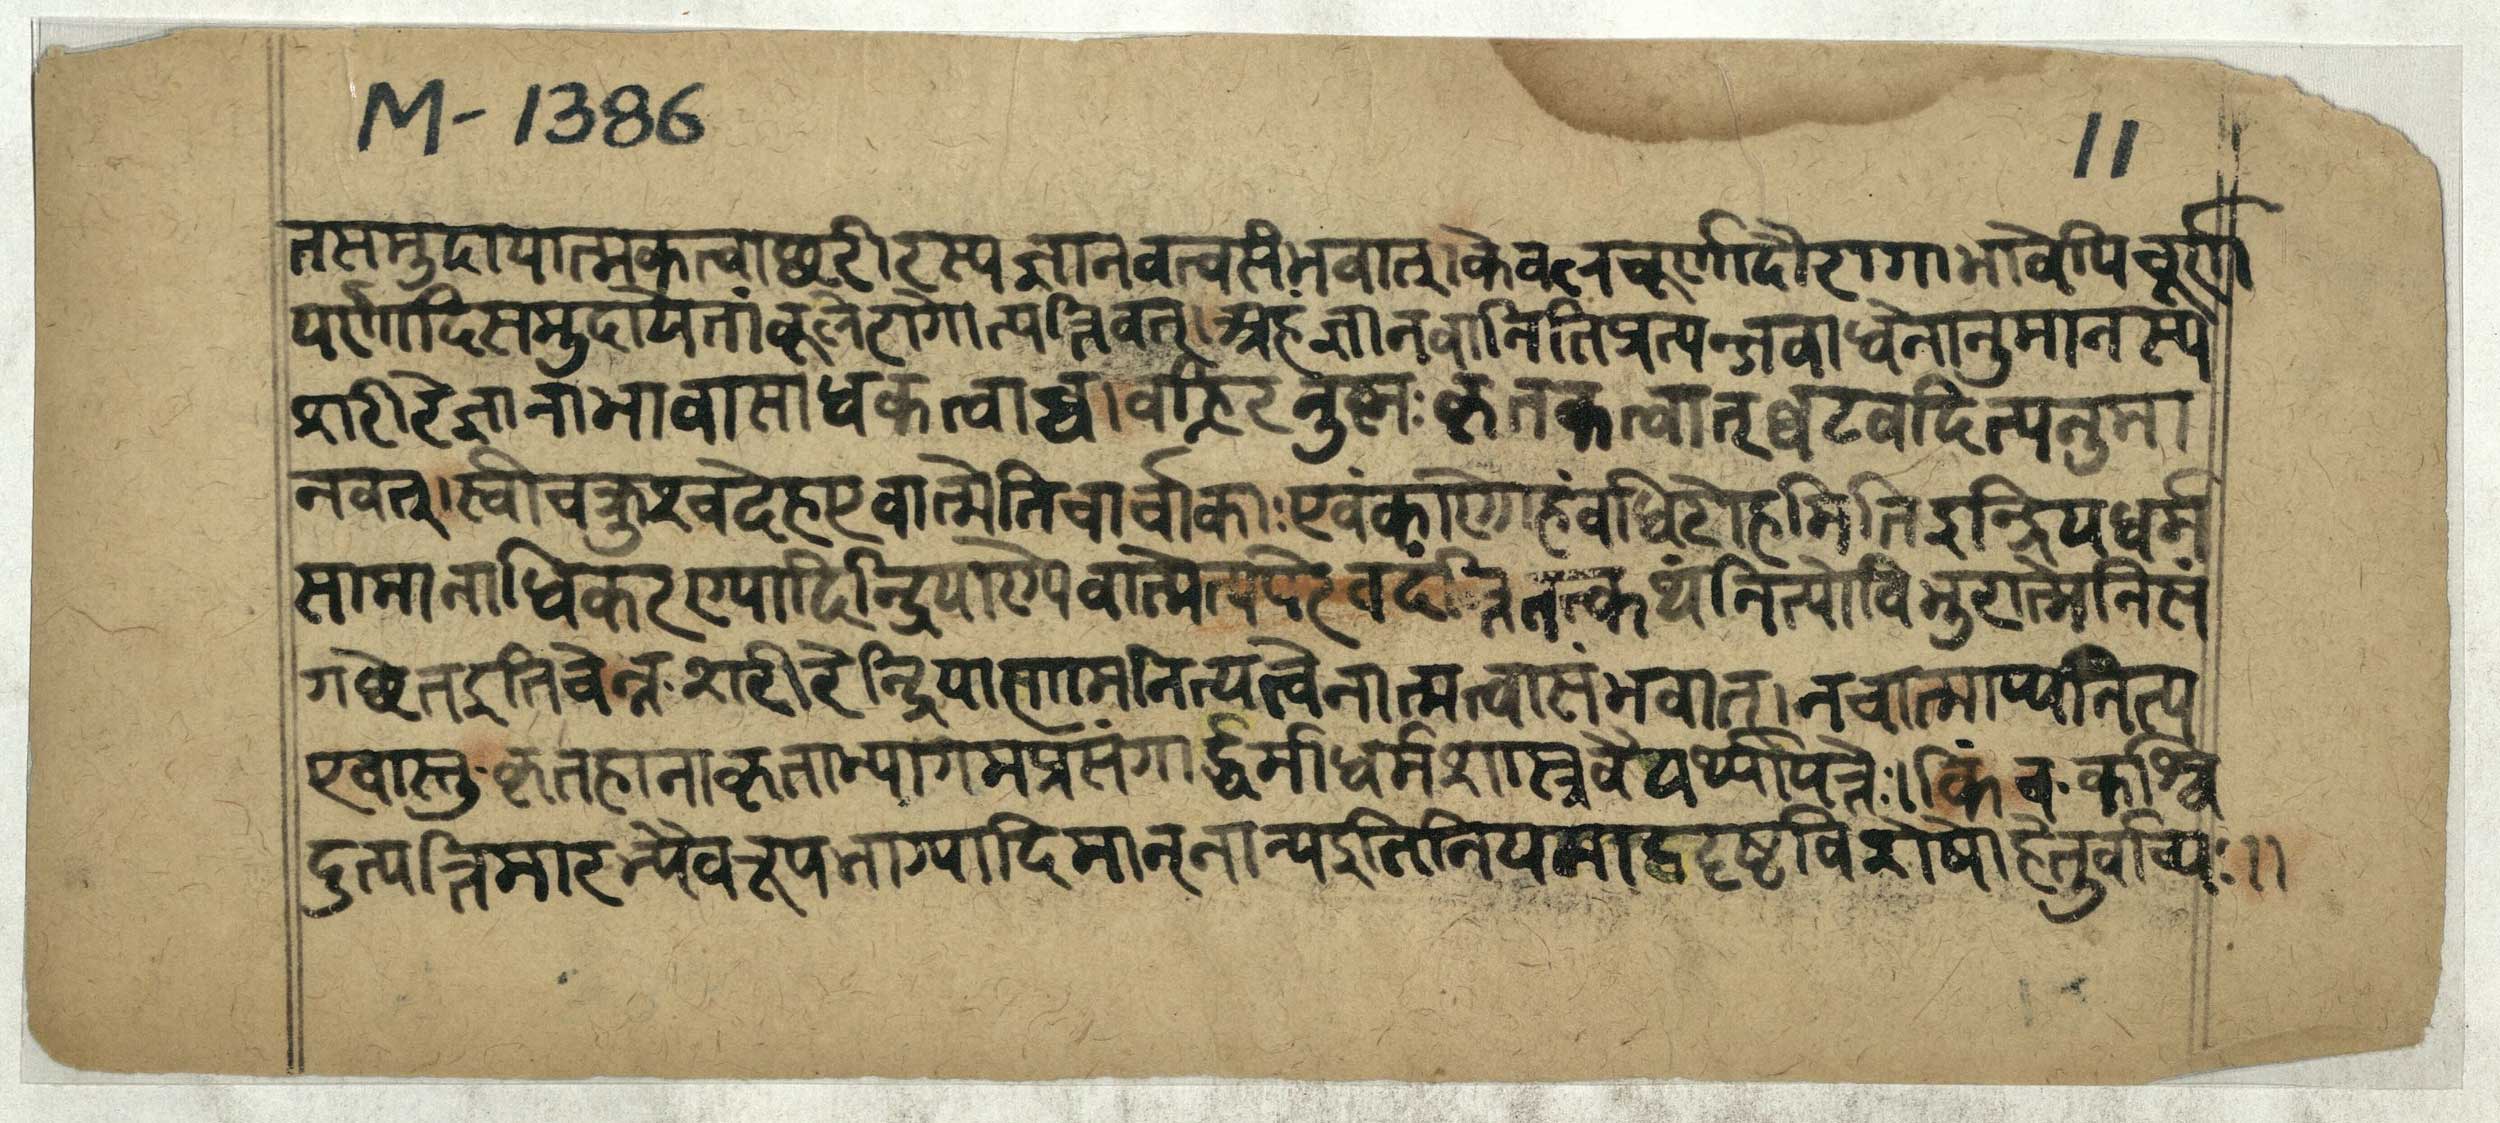 M-1386
11
तसमुदायात्मकत्वाछरीरस्यज्ञानवत्वसंभवात्।केवलचूर्णादौरागाभावेपिचूर्ण
पर्णादिसमुदायेतांबूलेरागोत्पत्तिवत्।अहंज्ञानवानितिप्रत्यक्षबाधेनानुमानस्य
शरीरेज्ञानाभावासाधकत्वाच्च।वह्निरनुष्णःकृतकत्वात्घटवदित्यनुमा
नवत्।स्वीचक्रुश्चदेहएवात्मेतिचार्वाकाःएवंकाणोहंबधिरोहमितिइन्द्रियधर्म
सामानाधिकरण्यादिन्द्रियाण्येवात्मेत्यपरेवदन्तितत्कथंनित्योविभुरात्मेतिसं
गछेतइतिचेन्न.शरीरेन्द्रियाणामनित्यत्वेनात्मत्वासंभवात्।नचात्माप्यनित्य
एवास्तु.कृतहानाकृताभ्यागमप्रसंगार्द्धर्माधर्मशास्त्रवैयर्थ्यापत्तेः।किंच.कश्चि
दुत्पत्तिमारभ्यैवरूपभाग्यादिमान्नान्यइतिनियमाददृष्टविशेषोहेतुर्वाच्यः॥